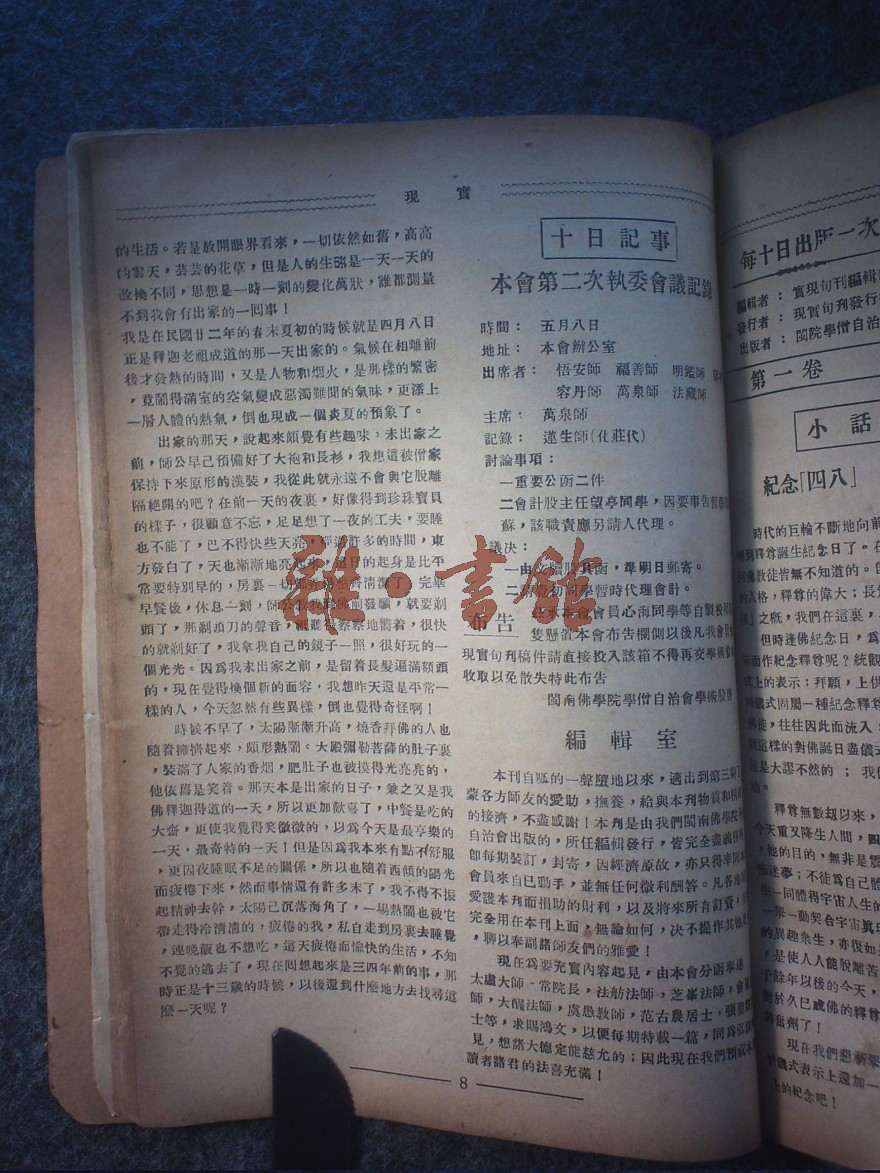 現實
的生活。若是放開眼界看來,一切依然如舊,高高
的雲天,芸芸的花草,但是人的生活是一天一天的
改換不同,思想是一時一刻的變化萬狀,誰都測量
不到我會有出家的一回事!
我是在民國廿二年的春末夏初的時候就是四月八日
正是釋迦老祖成道的那一天出家的。氣候在相離前
後才發熱的時間,又是人物和烟火,是那樣的緊密
,竟鬧得滿室的空氣變成惡濁難聞的氣味,更添上
一層人體的熱氣,倒也現成一個炎夏的預象了。
出家的那天,說起來頗覺有些趣味。未出家之
前,師公早已預備好了大袍和長衫,我想這被僧家
保持下來原形的漢裝,我從此就永遠不會與它脫離
隔絕開的吧?在前一天的夜裏,好像得到珍珠寶貝
的樣子,很顧意不忘,足足想了一夜的工夫,要睡
也不能了,巴不得快些天亮,
許多的時間,東
方發白了,天也漸漸地亮起來,
日的起身是比平
常要特別早的,房裏一切
完畢
早餐後,休息一刻,師公
我到佛前發願,就要剃
頭了,那剃頭刀的聲音,
察察地嚮着,很快
的就剃好了,我拿我自己的鏡子一照,很好玩的一
個光光。因爲我未出家之前,是留着長髮遍滿額頭
的,現在覺得換個新的面容,我想昨天還是平常一
樣的人,今天忽然有些異樣,倒也覺得奇怪啊!
時候不早了,太陽漸漸升高,燒香拜佛的人也
隨着擁擠起來,頗形熱鬧。大殿彌勒菩薩的肚子裏
,裝滿了人家的香烟,肥肚子也被摸得光亮亮的,
他依舊是笑着。那天本是出家的日子,兼之又是我
佛釋迦得道的一天,所以更加歡喜了,中餐是吃的
大齋,更使我覺得笑微微的,以爲今天是最享樂的
一天,最奇特的一天!但是因爲我本來有點不舒服
,更因夜睡眠不足的關係,所以也隨着西傾的陽光
而疲倦下來,然而事情還有許多末了,我不得不振
起精神去幹,太陽己沉落海角了,一場熱鬧也被它
帶走得冷清清的,疲倦的我,私自走到房裏去睡覺
,連晚飯也不想吃,這天疲倦而愉快的生活,不知
不覺的逃去了,現在囘想起來是三四年前的事,那
時正是十三歲的時候,以後還到什麼地方去找尋這
麼一天呢?
十日記事
本會第二次執委會議記錄
時間: 五月八日
地址: 本會辦公室
出席者: 悟安師 福善師 明鑑師
容丹師 萬泉師 法藏師
主席: 萬泉師
記錄: 蓮生師(化莊代)
討論事項:
一重要公函二件
二會計股主任望亭同學,因要事告暫
蘇,該職責應另請人代理。
議決:
一由文
函,準明日郵寄。
二
同學暫時代理會計。
布告
本會會員心海同學等自製
隻懸
本會布告欄側以後凡我會員
現實旬刊稿件請直接投入該箱不得再交學術
收取以免散失特此布告
閩南佛學院學僧自治會學術股啓
編輯室
本刊自呱的一聲墮地以來,適出到第三期了
蒙各方師友的愛助,撫養,給與本刊物質和精神
的接濟,不盡感謝!本刊是由我們閩南佛學院學僧
自治會出版的,所任編輯發行,皆完全盡義務
卽每期裝訂,封寄,因經濟原故,亦只得率同本
會員來自己動手,並無任何微利酬答。凡各地
愛護本刊而捐助的財利,以及將來所有訂資,
完全用在本刊上面,無論如何,決不提作其他
,聊以奉副諸師友們的雅愛!
現在爲要充實內容起見,由本會分函奉達
太虛大師,常院長,法舫法師,芝峯法師,會覺
師,大醒法師,虞愚敎師,范古農居士,張聖慧
士等,求賜鴻文,以便每期特載一篇,同爲弘
見,想諸大德定能慈允的;因此現在我們預祝本
讀者諸君的法喜充滿!
8
每十日出版一次
編輯者:實現旬刊編輯
發行者:現實旬刊發行
出版者:閩院學僧自治
第一卷
小話
紀念「四八」
時代的巨輪不斷地向前
到釋尊誕生紀念日了。在
佛敎徒皆無不知道的。
的人格,釋尊的偉大;長
」之槪,我們在這裏,
但時逢佛紀念日,爲
面作紀念釋尊呢?統觀
式上的表示:拜願,上供
儀式固屬一種紀念釋尊
佛徒,往往因此而流入
就這樣的對佛誕日盡儀式
是大謬不然的;我們
釋尊無數却以來,
今天重又降生人間,四
,他的目的,無非是
迷夢;不徒爲自己
一同體得宇宙人生的
一舉一動契合宇宙眞
的異趣衆生,亦復如
,是使人人能脫離苦
千餘年以後的今天,
對於久巳成佛的釋尊
奮劑了!
現在我們懇祈
儀式表示上還加一
上的紀念吧!
雜·書館